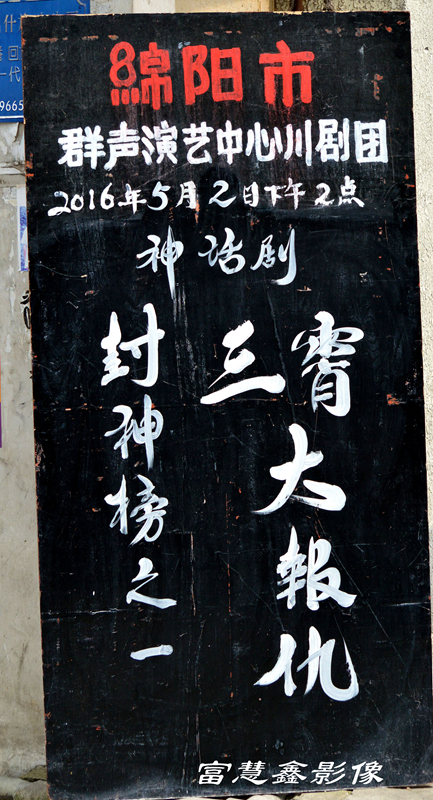 綿阳市
群声演艺中心川剧团
2016年5月2日下午2点
神话剧
三霄大報仇
封神榜之一
富慧鑫影像
9665